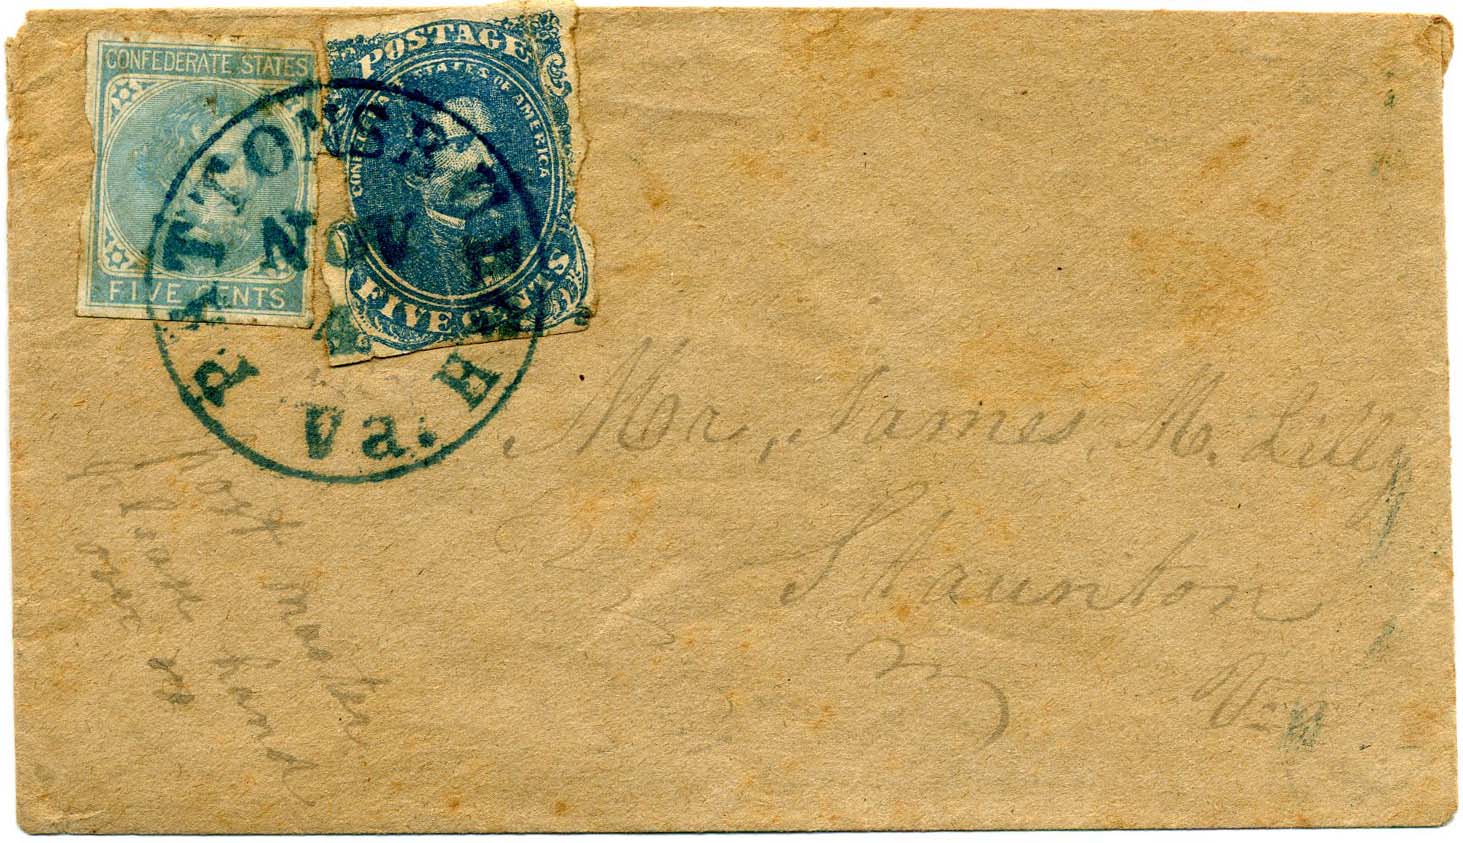 CONFEDERATE STATES
FIVE CENTS
POSTAGE
CONFEDERATE STATES OF AMERICA
FIVE CENTS
RATTONSBURGH
NOV
Va.
Mr, James M. Lilly
Staunton
Va
Post Master
Please hand
over